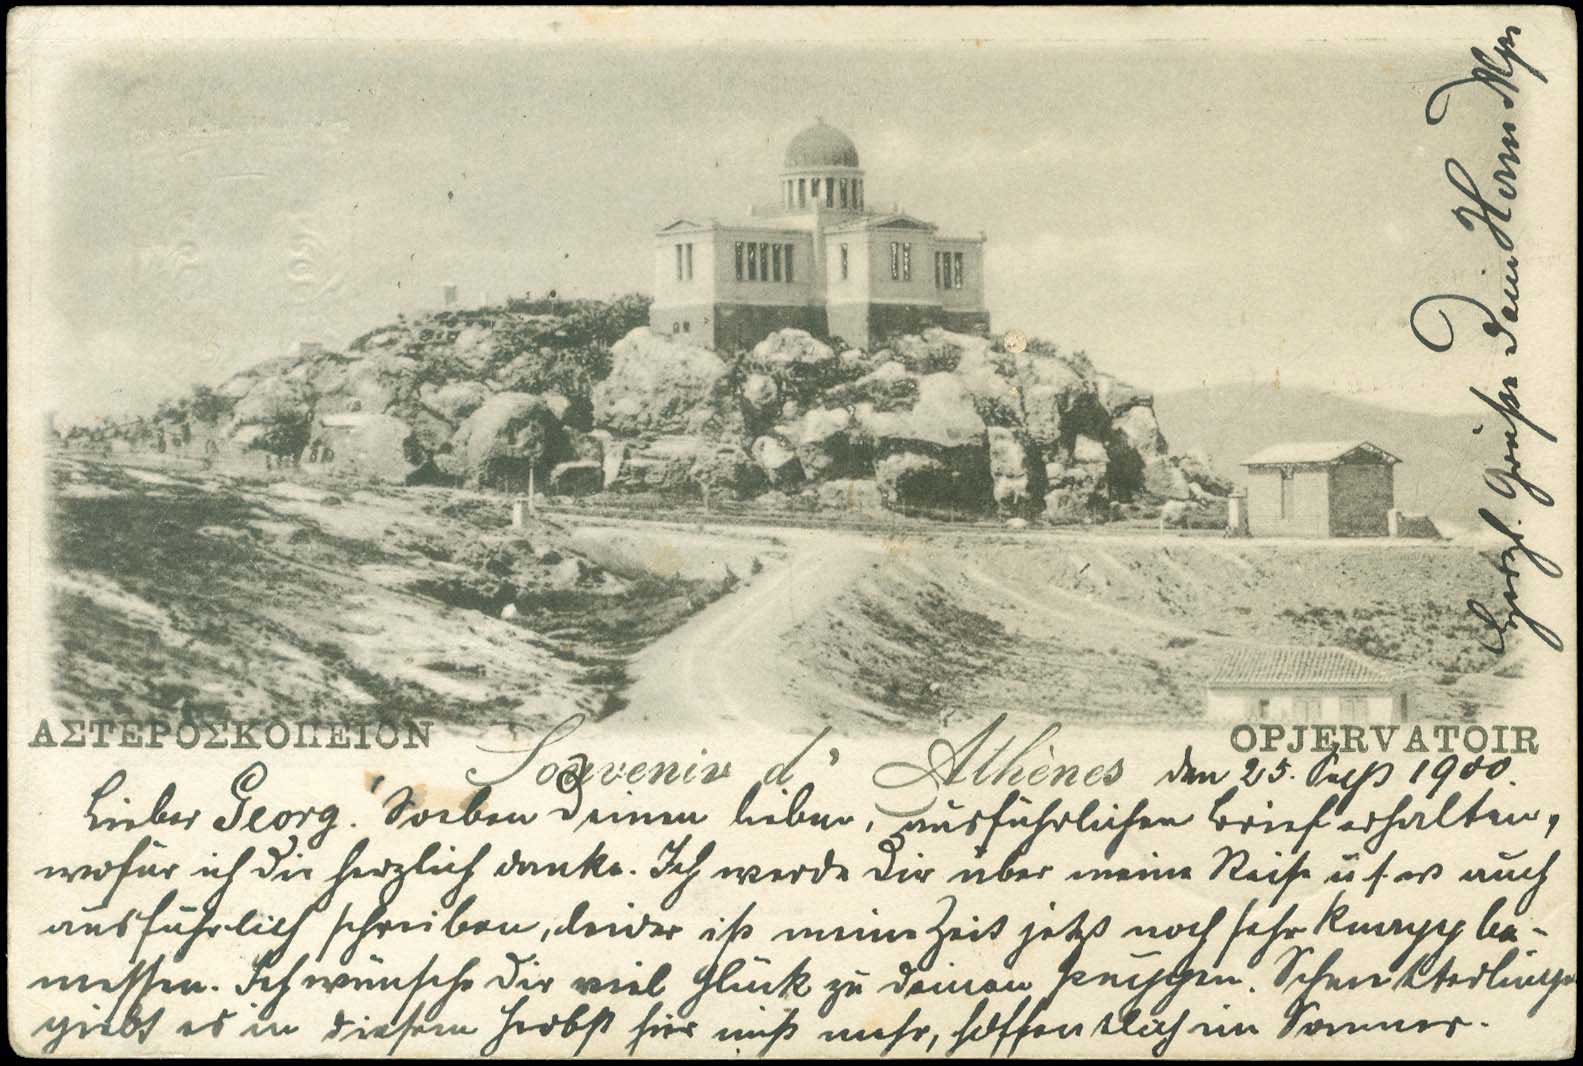 ΑΣΤΕΡΟΣΚΟΠΕΙΟΝ
OPJERVATOIR
Souvenir d'Athènes
den 25. Sept 1900.
Lieber Georg. Soeben Deinen lieben, ausführlichen Brief erhalten,
wofür ich Dir herzlich danke. Ich werde Dir über meine Reise u s w auch
ausführlich schreiben, leider ist meine Zeit jetzt noch sehr knapp be-
messen. Ich wünsche Dir viel Glück zu Deinen Puppen. Schmetterlinge
giebt es in diesem Herbst hier nicht mehr, hoffentlich im Sommer.
Herzl. Grüße Dein Hermann